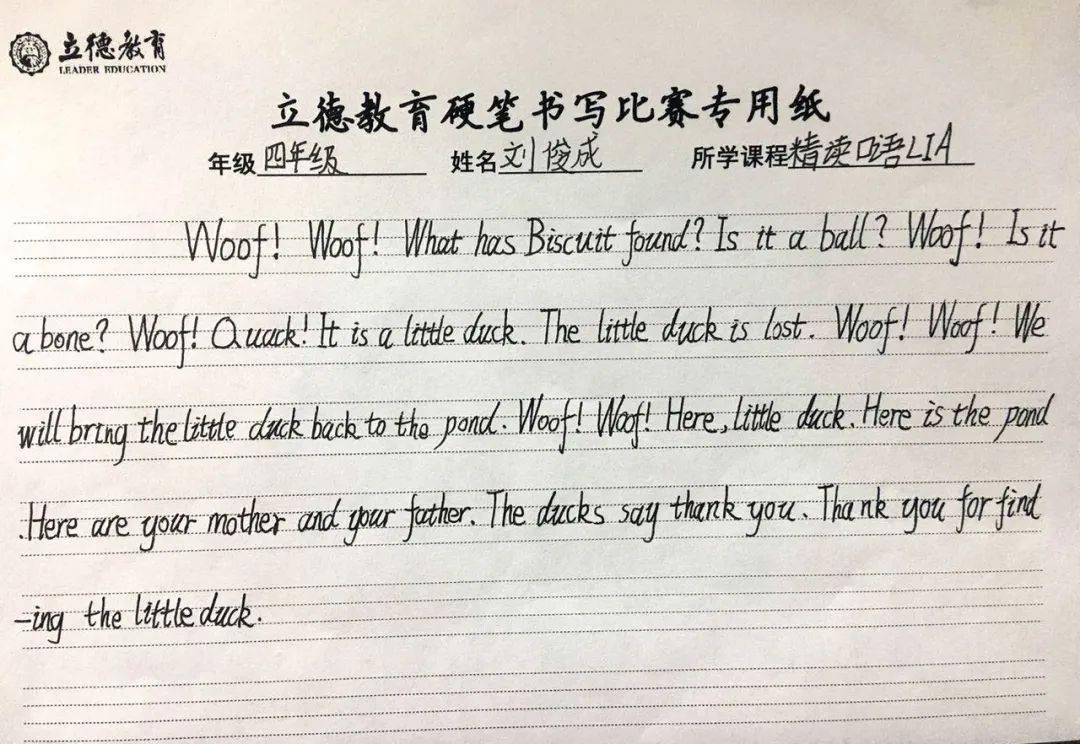 立德教育
LEADER EDUCATION
立德教育硬笔书写比赛专用纸
年级 四年级 姓名 刘俊成 所学课程 精读口语L1A
Woof! Woof! What has Biscuit found? Is it a ball? Woof! Is it
a bone? Woof! Quack! It is a little duck. The little duck is lost. Woof! Woof! We
will bring the little duck back to the pond. Woof! Woof! Here, little duck. Here is the pond
. Here are your mother and your father. The ducks say thank you. Thank you for find
-ing the little duck.